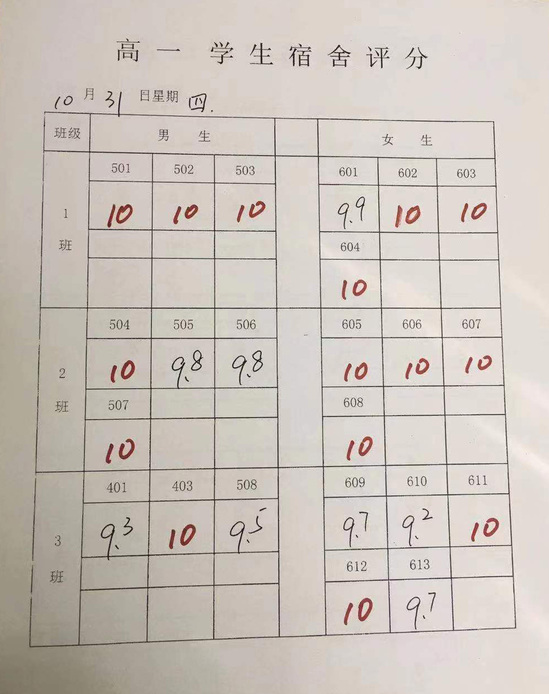 高一 学生宿舍评分
10月31日星期四.
班级 男生 女生
501 502 503 601 602 603
10 10 10 9.9 10 10
1班 604
10
504 505 506 605 606 607
10 9.8 9.8 10 10 10
2班 507 608
10 10
401 403 508 609 610 611
9.3 10 9.5 9.7 9.2 10
3班 612 613
10 9.7